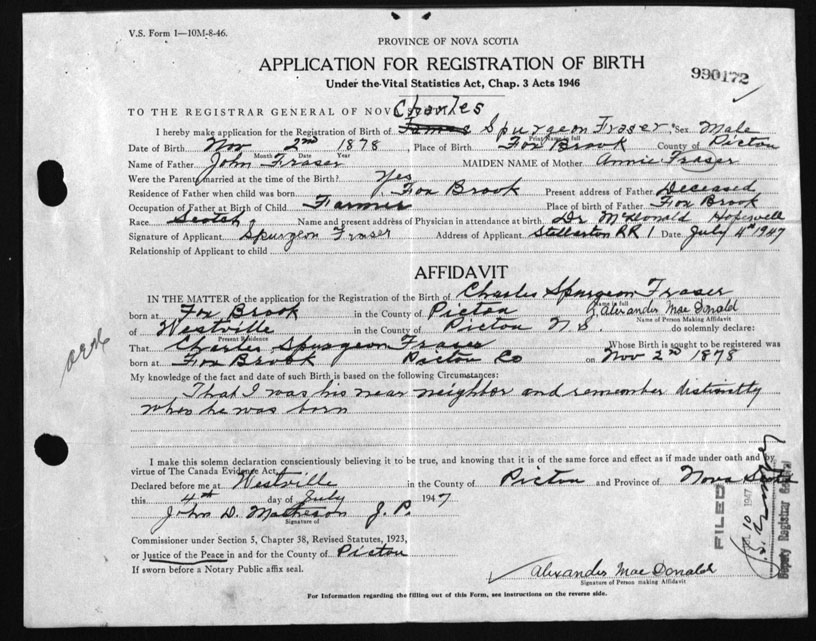 V.S. Form 1—10M-8-46.
PROVINCE OF NOVA SCOTIA
APPLICATION FOR REGISTRATION OF BIRTH
Under the Vital Statistics Act, Chap. 3 Acts 1946
990172
TO THE REGISTRAR GENERAL OF NOV
Charles
I hereby make application for the Registration of Birth of James Spurgeon Fraser Sex Male
Print Name in full
Date of Birth Nov 2nd 1878 Place of Birth Fox Brook County of Picton
Month Date Year
Name of Father John Fraser MAIDEN NAME of Mother Annie Fraser
Were the Parents married at the time of Birth? Yes
Residence of Father when child was born Fox Brook Present address of Father Deceased
Occupation of Father at Birth of Child Farmer Place of birth of Father Fox Brook
Race Scotch Name and present address of Physician in attendance at birth Dr McDonald Hopewell
Signature of Applicant Spurgeon Fraser Address of Applicant Stellarton RR 1 Date July 4th 1947
Relationship of Applicant to child
AFFIDAVIT
IN THE MATTER of the application for the Registration of the Birth of Charles Spurgeon Fraser
Name in full
born at Fox Brook in the County of Picton I, Alexander Mac Donald
Name of Person Making Affidavit
of Westville in the County of Picton N S. do solemnly declare:
Present Residence
That Charles Spurgeon Fraser Whose Birth is sought to be registered was
born at Fox Brook Picton Co on Nov 2nd 1878
My knowledge of the fact and date of such Birth is based on the following Circumstances:
That I was his near neighbor and remember distinctly
when he was born
I make this solemn declaration conscientiously believing it to be true, and knowing that it is of the same force and effect as if made under oath and by
virtue of The Canada Evidence Act.
Declared before me at Westville in the County of Picton and Province of Nova Scotia
this 4th day of July 1947
John D. Matheson J. P.
Signature of
Commissioner under Section 5, Chapter 38, Revised Statutes, 1923,
or Justice of the Peace in and for the County of Picton
If sworn before a Notary Public affix seal.
Alexander Mac Donald
Signature of Person making Affidavit
For Information regarding the filling out of this Form, see instructions on the reverse side.
FILED
10 1947
Deputy Registrar General